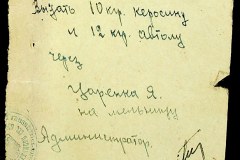 Выдать 10 кгр. керосину
и 12 кгр. автолу
через
Царенка Я.
на мельницу
Администратор.